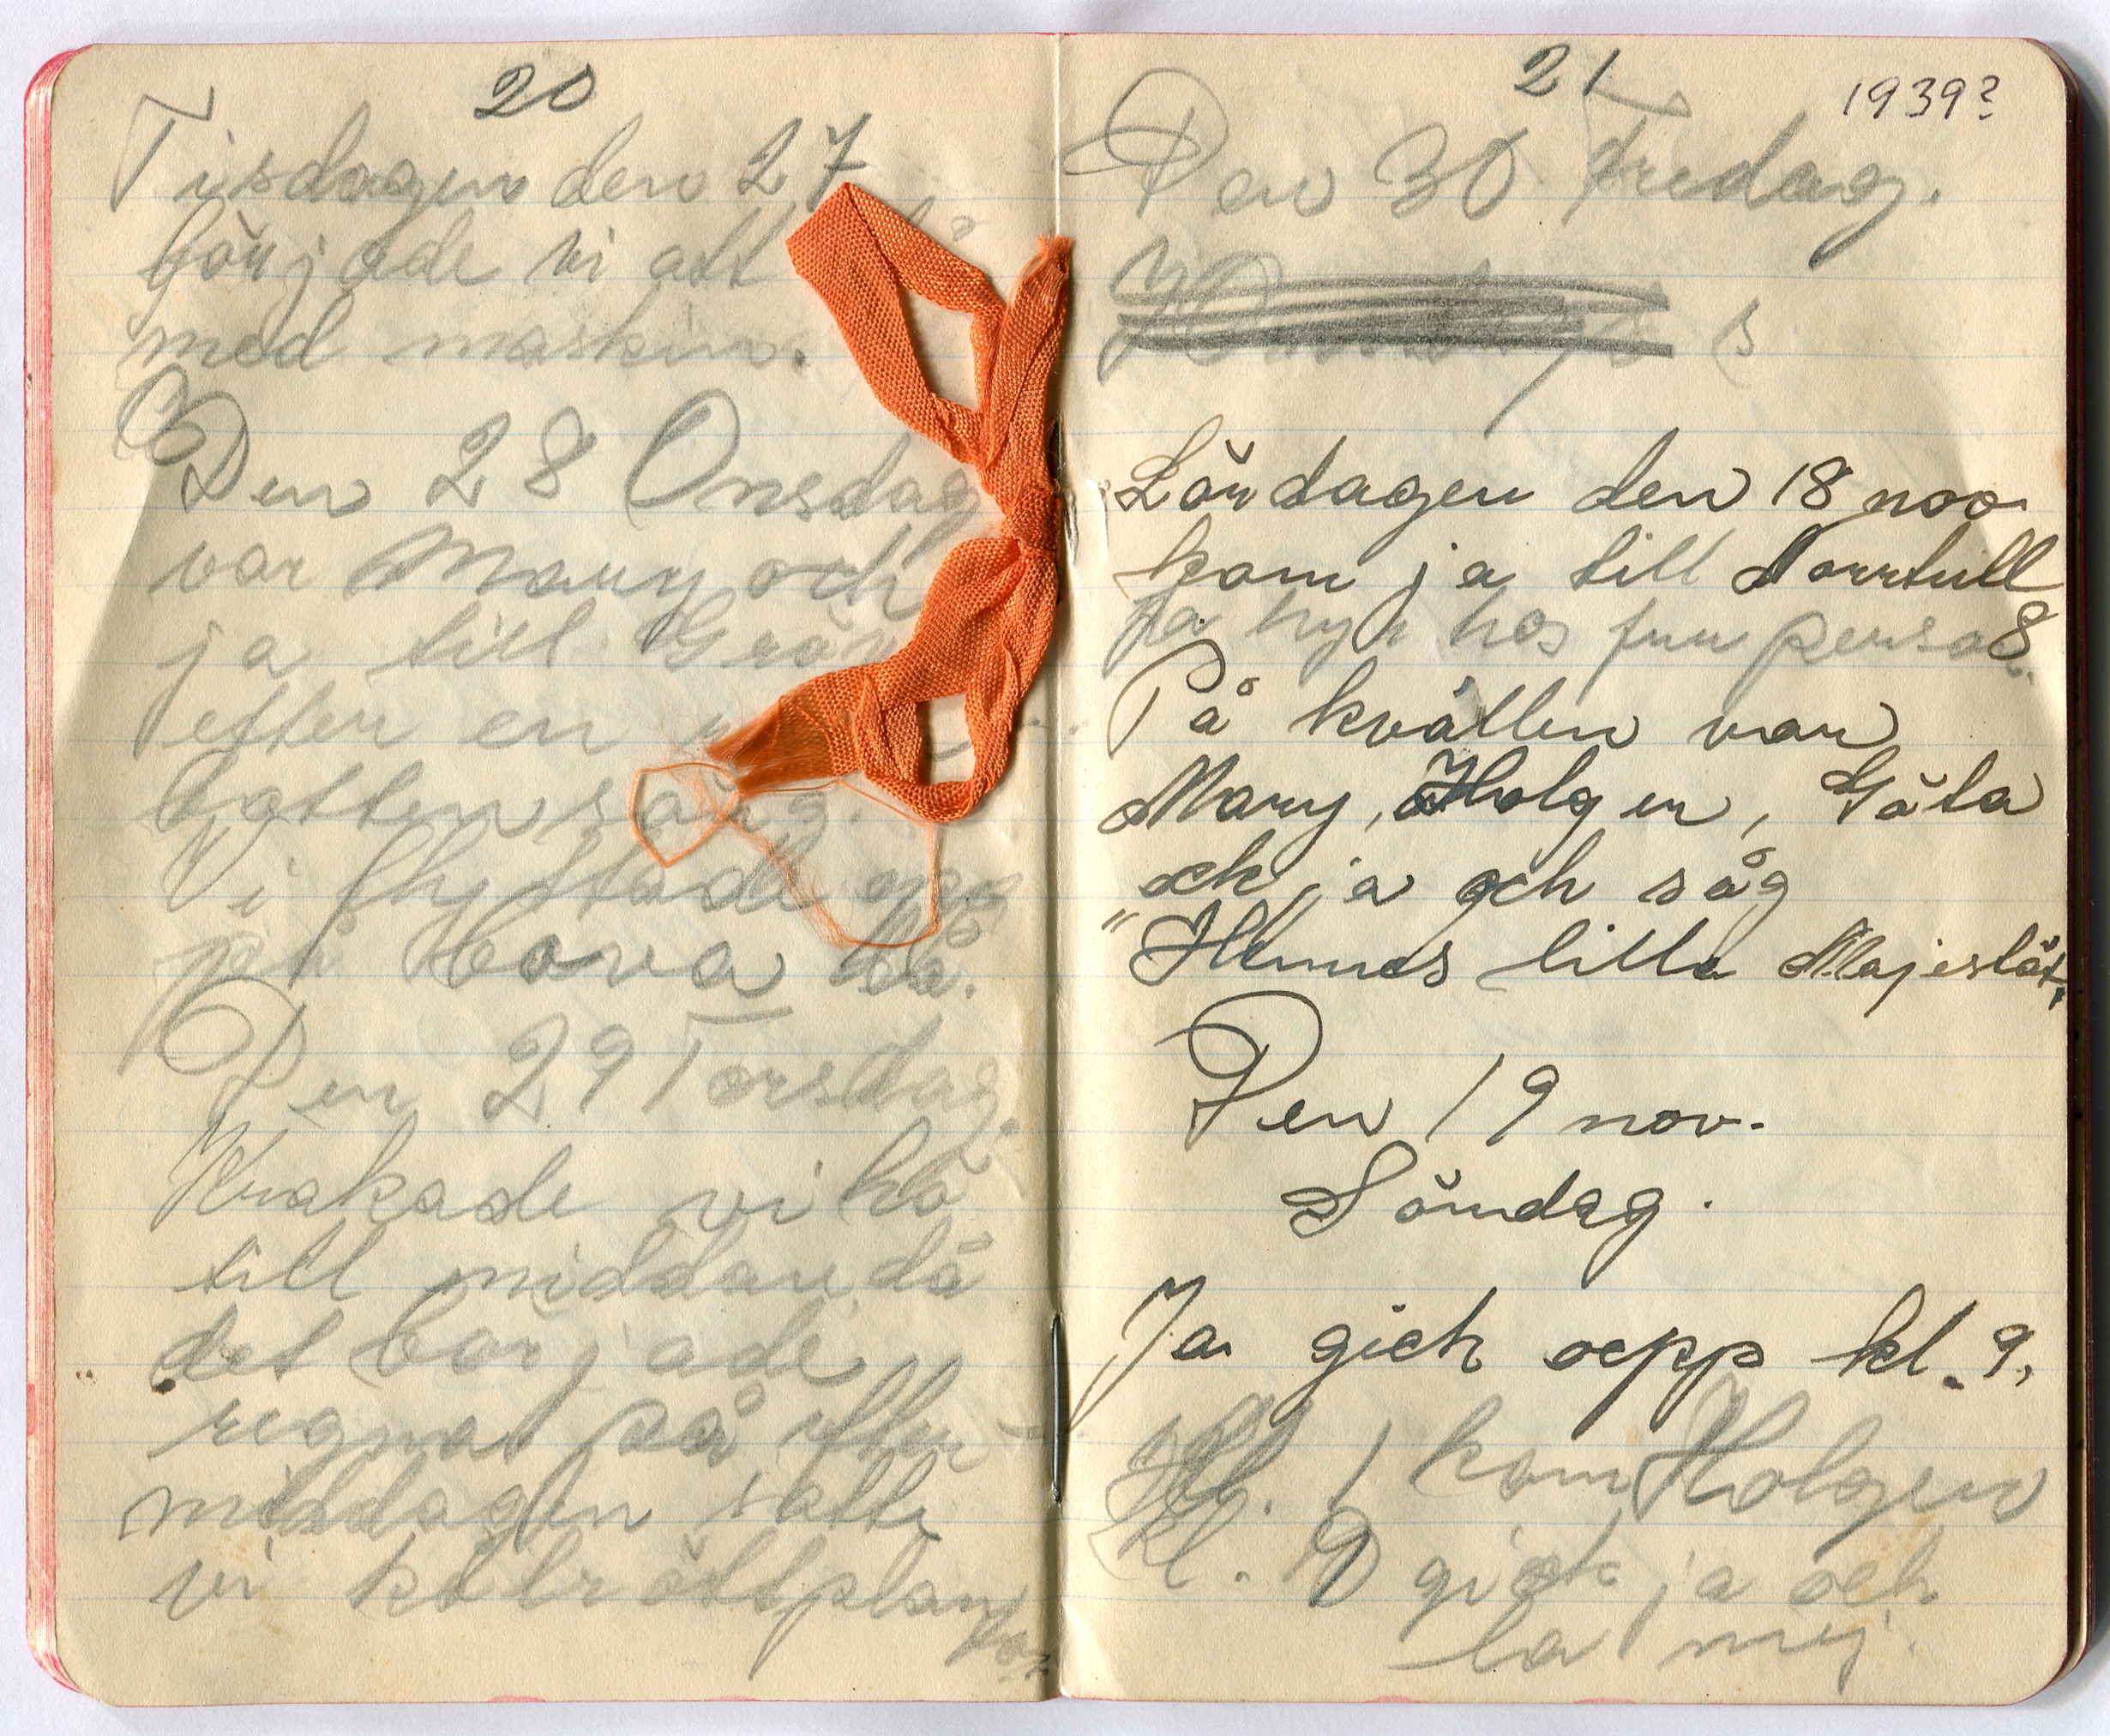 20
Tisdagen den 27
började vi att
med maskin.
Den 28 Onsdag
var Mary och
ja till
efter en
botten säng.
Vi flyttade opp
på Tova
Den 29 Torsdag.
Krakade vi hö
till middan, då
det började
regna på efter-
middagen satte
vi kålrottplan
tor.
21
1939?
Den 30 Fredag.
Lördagen den 18 nov
kom ja till Norrtull
8.
Ja hyr hos fru person
På kvällen var
Mary, Holger, Göta
och ja och såg
"Hennes lilla Majestät.
Den 19 nov.
Söndag.
Ja gick oepp kl. 9,
Kl. 1 kom Holger
Kl. 9 gick ja och
la mej.